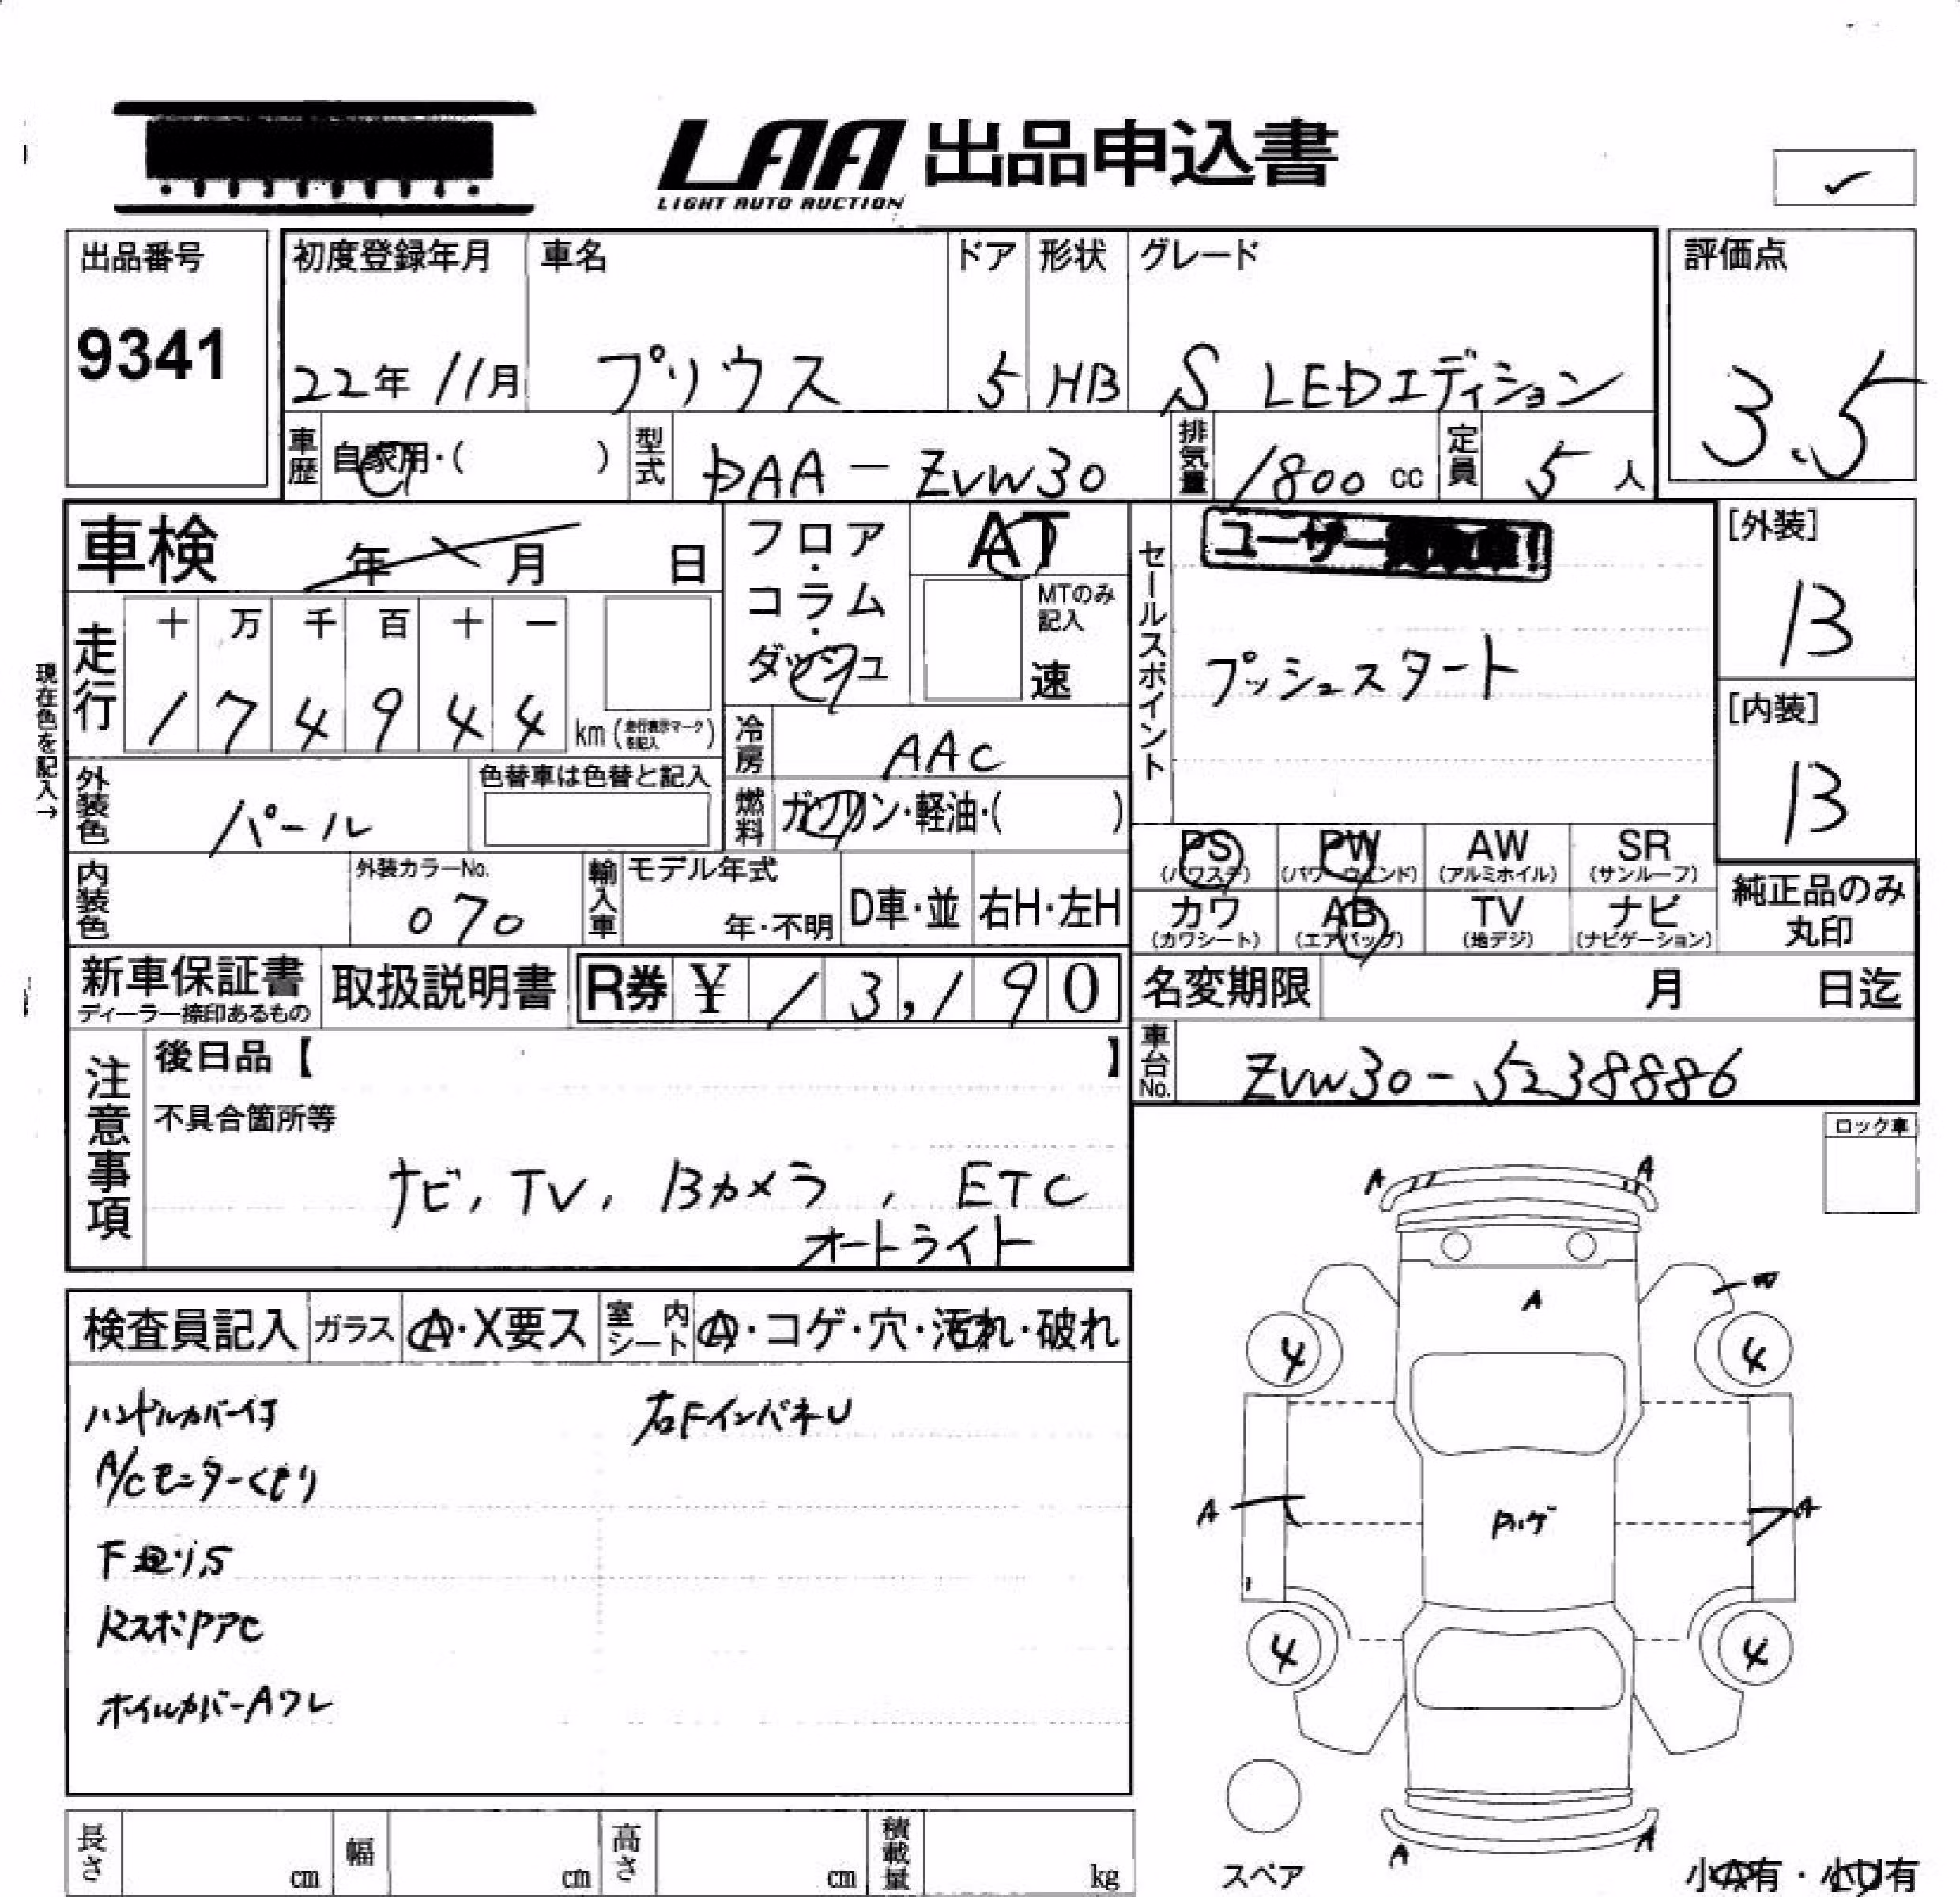 LAA 出品申込書
LIGHT AUTO AUCTION
出品番号
9341
初度登録年月 車名 ドア 形状 グレード
22年 11月 プリウス 5 HB S LEDエディション
評価点
3.5
車歴 自家用・( ) 型式 DAA-ZVW30 排気量 1800 cc 定員 5 人
車検 年 月 日
フロア・コラム・ダッシュ
AT
MTのみ記入
速
セールスポイント
ユーザー
プッシュスタート
[外装]
B
[内装]
B
現在色を記入→
走行 十 万 千 百 十 一
1 7 4 9 4 4 km (走行表示マークを記入)
冷房 AAC
燃料 ガソリン・軽油・( )
外装色 パール 色替車は色替と記入
内装色 外装カラーNo. 070
輸入車 モデル年式 年・不明 D車・並 右H・左H
PS (パワステ) PW (パワーウインド) AW (アルミホイル) SR (サンルーフ)
カワ (カワシート) AB (エアバッグ) TV (地デジ) ナビ (ナビゲーション)
純正品のみ丸印
新車保証書 ディーラー捺印あるもの 取扱説明書 R券 ¥ 13,190
名変期限 月 日迄
車台No. ZVW30-5238886
注意事項
後日品【 】
不具合箇所等
ナビ, TV, Bカメラ, ETC
オートライト
ロック車
検査員記入 ガラス A・X要ス 室内シート A・コゲ・穴・汚れ・破れ
ハンドルカバー付 右FインパネU
A/Cモニターくもり
下廻りS
RスポPアC
ホイルカバーAワレ
A A
A
4 4
A A
Pハゲ
4 4
A A
スペア
小A有・小U有
長さ cm 幅 cm 高さ cm 積載量 kg